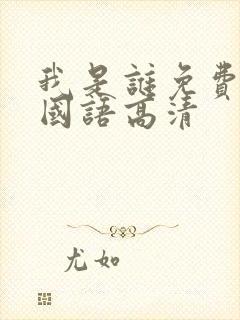 我是誰免費
國語高清
尤如